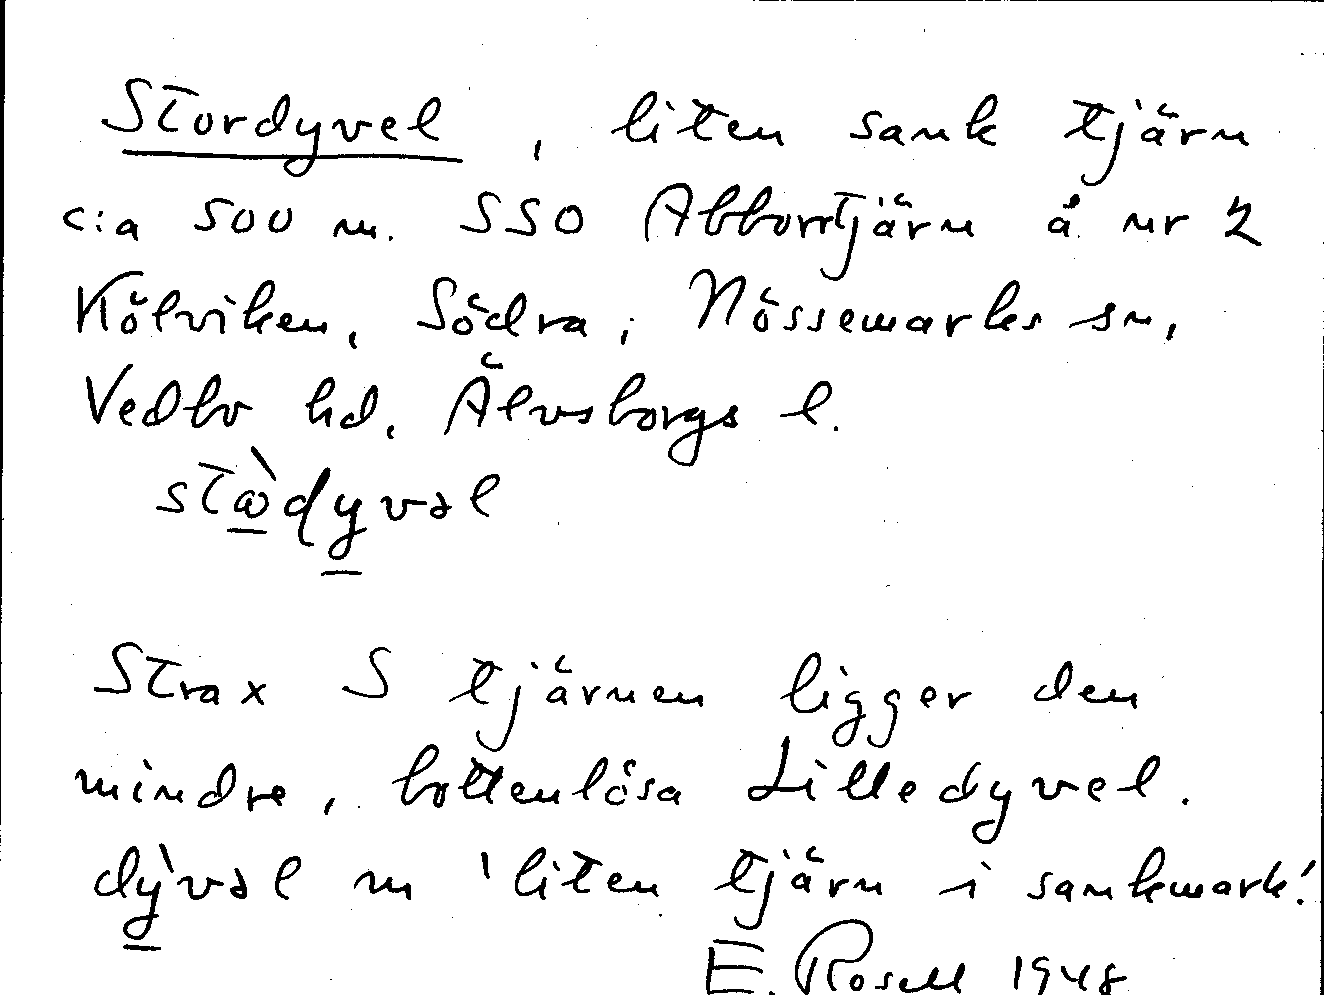 Stordyvel, liten sank tjärn
c:a 500 m. SSO Abborrtjärn å nr 2
Kölviken, Södra, Nössemarks sn,
Vedbo hd. Älvsborgs l.
stὼdyvəl
Strax S tjärnen ligger den
mindre, bottenlösa Lilledyvel.
dỳvəl m 'liten tjärn i sankmark'.
E. Rosell 1948